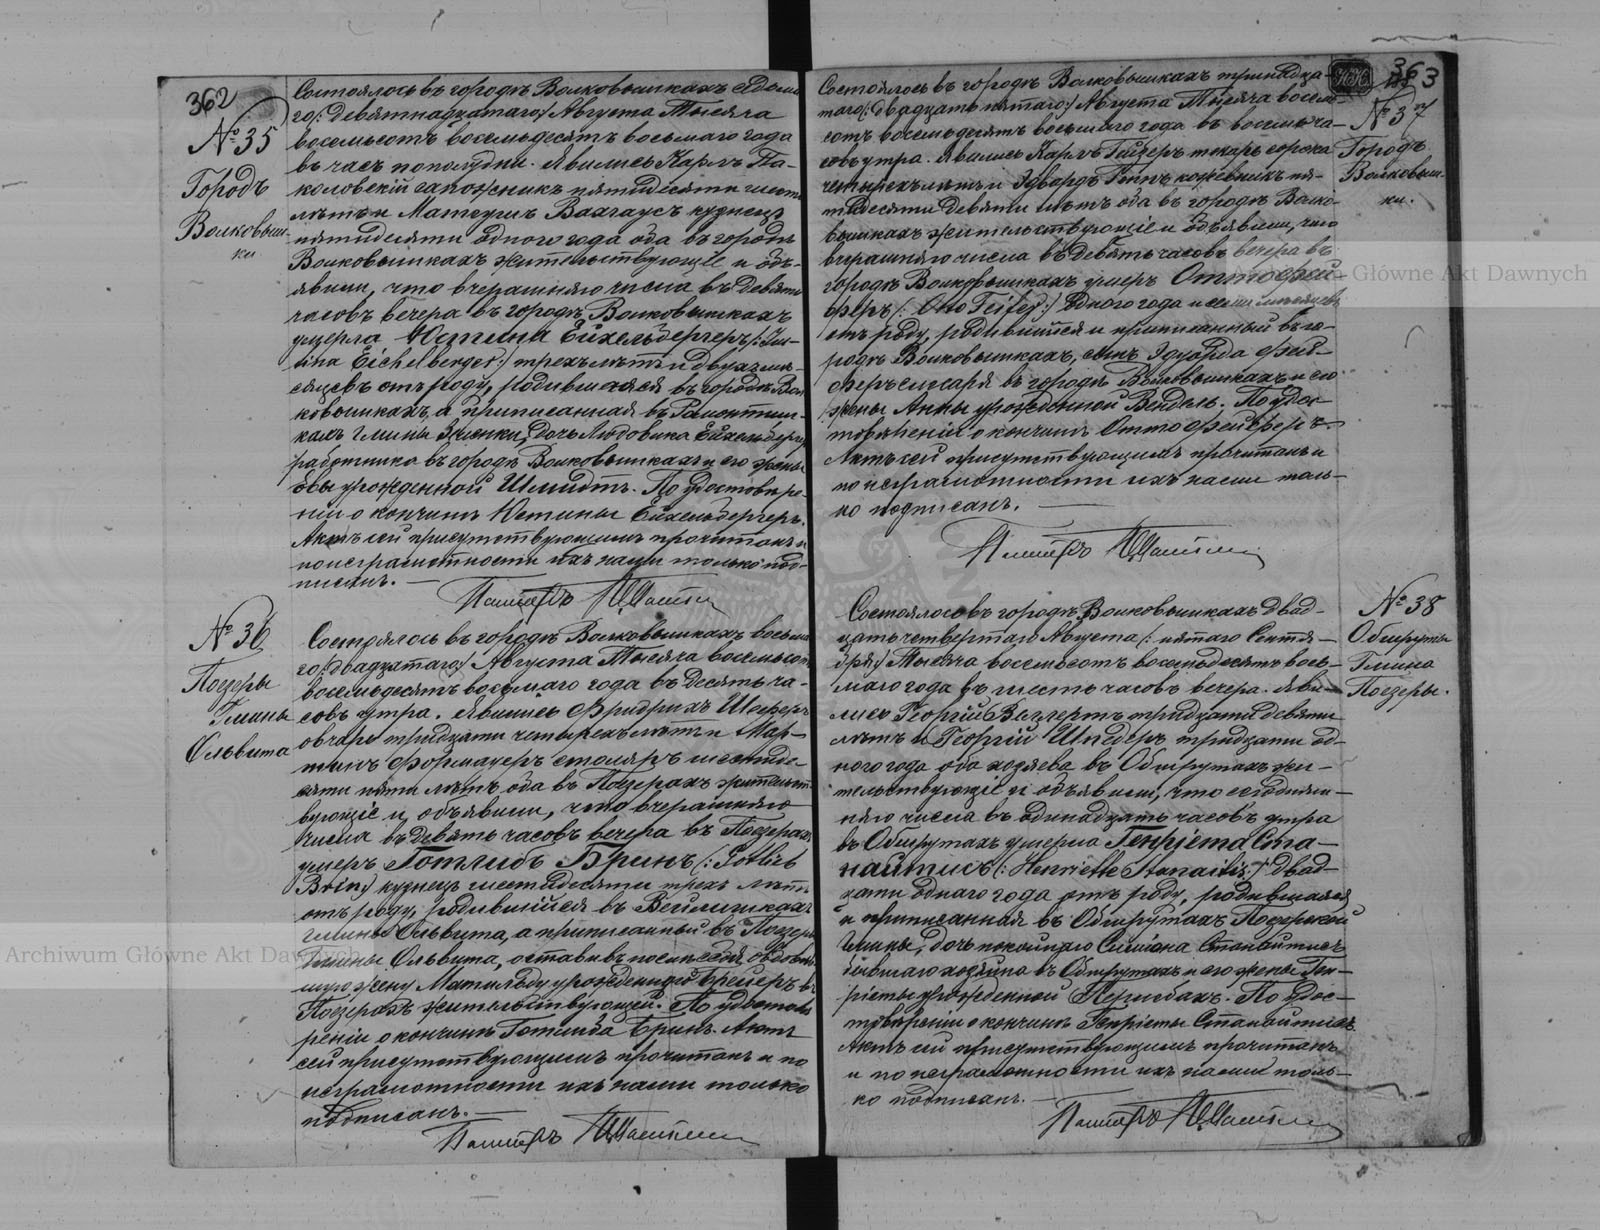 362
№ 35
Городъ
Волковыш-
ки
Состоялось въ городѣ Волковышкахъ седьма-
го /: Девятнадцатаго :/ Августа Тысяча
восемьсотъ восемьдесятъ восьмаго года
въ часъ пополудни. Явились Карлъ Па-
коловскій сапожникъ пятидесяти шести
лѣтъ и Матеушъ Вахгаусъ кузнецъ
пятидесяти одного года оба въ городѣ
Волковышкахъ жительствующіе и объ-
явили, что вчерашняго числа въ девять
часовъ вечера въ городѣ Волковышкахъ
умерла Юстина Ейхельбергеръ /: Ju-
stina Eichelberger :/ трехъ лѣтъ и двухъ мѣ-
сяцевъ отъ роду, родившаяся въ городѣ Вол
ковышкахъ, а приписанная въ
гмины Зеленки, дочь Людовика Ейхельбергеръ
работника въ городѣ Волковышкахъ и его жены
Евы урожденной Шмидтъ. По удостовѣре-
ніи о кончинѣ Юстины Ейхельбергеръ.
Актъ сей присутствующимъ прочитанъ и
по неграмотности ихъ нами только под-
писанъ. —
Пасторъ
№ 36
Поезеры
Гмины
Ольвита
Состоялось въ городѣ Волковышкахъ восьма
го /: двадцатаго :/ Августа Тысяча восемьсотъ
восемьдесятъ восьмаго года въ десять ча-
совъ утра. Явились Фридрихъ Шеферъ
овчаръ тридцати четырехъ лѣтъ и Мар-
тинъ Формауеръ столяръ шестиде-
сяти пяти лѣтъ оба въ Поезерахъ жительст
вующіе и объявили, что вчерашняго
числа въ девять часовъ вечера въ Поезерахъ
умеръ Готлибъ Бринъ /: Gotlieb
Brin :/ кузнецъ шестидесяти трехъ лѣтъ
отъ роду, родившійся въ Вейлишкахъ
гмины Ольвита, а приписанный въ Поезерахъ
гмины Ольвита, оставивъ послѣ себя овдовѣв
шую жену Матильду урожденную Брейеръ въ
Поезерахъ жительствующей. По удостовѣ
реніи о кончинѣ Готлиба Бринъ. Актъ
сей присутствующимъ прочитанъ и по
неграмотности ихъ нами только
подписанъ. —
Пасторъ
363
№ 37
Городъ
Волковыш-
ки.
Состоялось въ городѣ Волковышкахъ тринадца-
таго /: двадцать пятаго :/ Августа Тысяча восемь-
сотъ восемьдесятъ восьмаго года въ восемь ча-
совъ утра. Явились Карлъ Гейзеръ токарь сорока
четырехъ лѣтъ и Эдвардъ Геппъ кожевникъ пя-
тидесяти девяти лѣтъ оба въ городѣ Волко-
вышкахъ жительствующіе и объявили, что
вчерашняго числа въ девять часовъ вечера въ
городѣ Волковышкахъ умеръ Отто Фей
феръ /: Otto Feifer :/ одного года и семи мѣсяцевъ
отъ роду, родившійся и приписанный въ го-
родѣ Волковышкахъ, сынъ Эдуарда Фей-
феръ слесаря въ городѣ Волковышкахъ и его
жены Анны урожденной Вендель. По удос-
товѣреніи о кончинѣ Отто Фейферъ.
Актъ сей присутствующимъ прочитанъ и
по неграмотности ихъ нами толь-
ко подписанъ. —
Пасторъ
№ 38
Обшруты
Гмина
Поезеры.
Состоялось въ городѣ Волковышкахъ двад-
цать четвертаго Августа /: пятаго Сентя-
бря :/ Тысяча восемьсотъ восемьдесятъ вось-
маго года въ шесть часовъ вечера. Яви-
лись Георгій Веггертъ тридцати девяти
лѣтъ и Георгій Шнедеръ тридцати од-
ного года оба хозяева въ Обшрутахъ жи-
тельствующіе и объявили, что сегодняш-
няго числа въ одинадцать часовъ утра
въ Обшрутахъ умерла Генріета Ста-
найтисъ /: Henriette Stanaitis :/ двад-
цати одного года отъ роду, родившаяся
и приписанная въ Обшрутахъ Поезерской
гмины, дочь покойнаго Симіона Станайтисъ
бывшаго хозяина въ Обшрутахъ и его жены Ген-
ріеты урожденной Першбахъ. По удос-
товѣреніи о кончинѣ Генріеты Станайтисъ.
Актъ сей присутствующимъ прочитанъ
и по неграмотности ихъ нами толь-
ко подписанъ. —
Пасторъ
Archiwum Główne Akt Dawnych
Główne Akt Dawnych